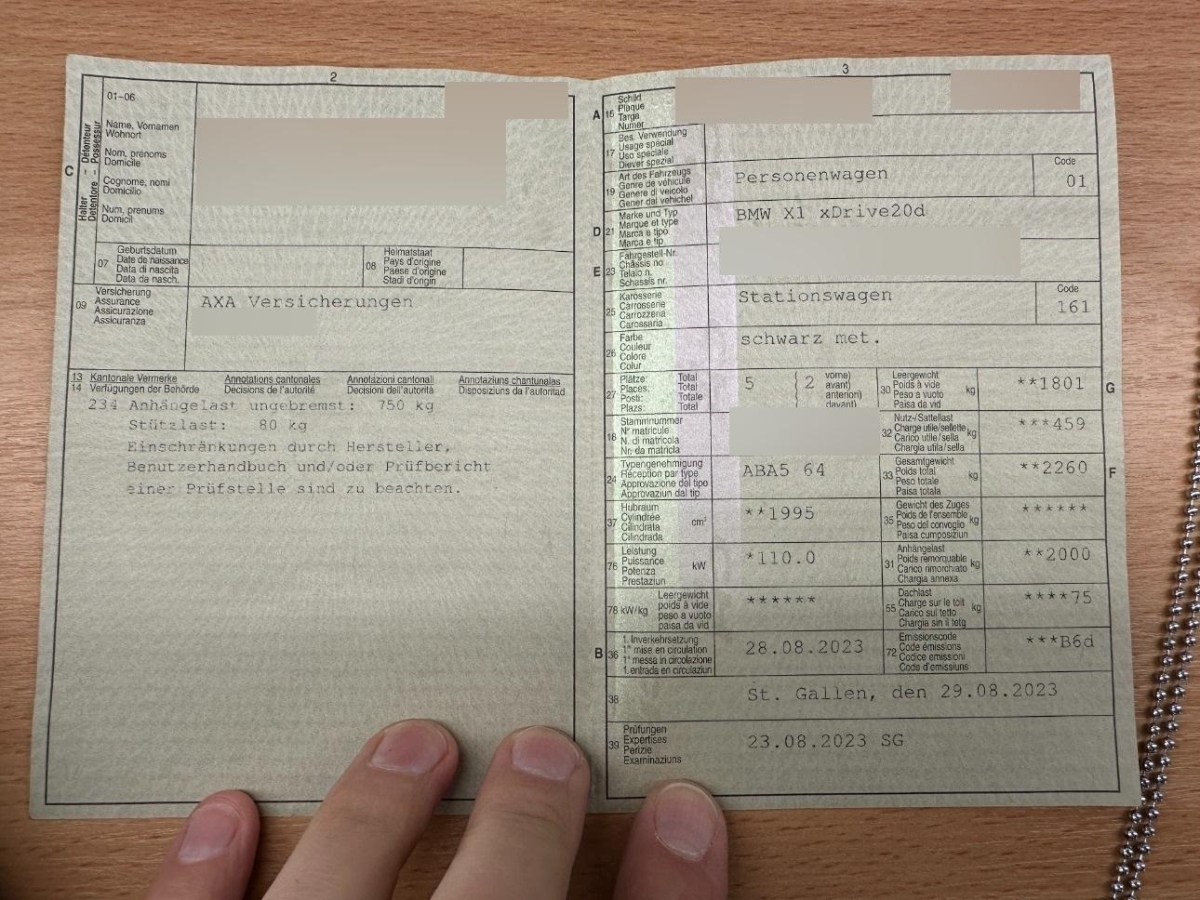 2
01–06
C
Halter - Détenteur
Detentore - Possessur
Name, Vornamen
Wohnort
Nom, prénoms
Domicile
Cognome, nomi
Domicilio
Num, prenums
Domicil
07
Geburtsdatum
Date de naissance
Data di nascita
Data da nasch.
08
Heimatstaat
Pays d'origine
Paese d'origine
Stadi d'origin
09
Versicherung
Assurance
Assicurazione
Assicuranza
AXA Versicherungen
13
14
Kantonale Vermerke
Verfügungen der Behörde
Annotations cantonales
Décisions de l'autorité
Annotazioni cantonali
Decisioni dell'autorità
Annotaziuns chantunalas
Disposiziuns da l'autoritad
234 Anhängelast ungebremst: 750 kg
Stützlast: 80 kg
Einschränkungen durch Hersteller,
Benutzerhandbuch und/oder Prüfbericht
einer Prüfstelle sind zu beachten.
3
A
Schild
15 Plaque
Targa
Numer
17
Bes. Verwendung
Usage spécial
Uso speciale
Diever spezial
19
Art des Fahrzeugs
Genre de véhicule
Genere di veicolo
Gener dal vehichel
Personenwagen
Code
01
D
21
Marke und Typ
Marque et type
Marca e tipo
Marca e tip
BMW X1 xDrive20d
E
23
Fahrgestell-Nr.
Châssis no
Telaio n.
Schassis nr.
25
Karosserie
Carrosserie
Carrozzeria
Carossaria
Stationswagen
Code
161
26
Farbe
Couleur
Colore
Colur
schwarz met.
27
Plätze: Total
Places: Total
Posti: Totale
Plazs: Total
5 ( 2
vorne)
avant)
anteriori)
davant)
30
Leergewicht
Poids à vide
Peso a vuoto
Paisa da vid
kg
**1801
G
18
Stammnummer
N° matricule
N. di matricola
Nr. da matricla
32
Nutz-/Sattellast
Charge utile/sellette
Carico utile/sella
Chargia utila/sella
kg
***459
24
Typengenehmigung
Réception par type
Approvazione del tipo
Approvaziun dal tip
ABA5 64
33
Gesamtgewicht
Poids total
Peso totale
Paisa totala
kg
**2260
F
37
Hubraum
Cylindrée
Cilindrata
Cilindrada
cm³
**1995
35
Gewicht des Zuges
Poids de l'ensemble
Peso del convoglio
Paisa cumposiziun
kg
******
76
Leistung
Puissance
Potenza
Prestaziun
kW
*110.0
31
Anhängelast
Poids remorquable
Carico rimorchiato
Chargia annexa
kg
**2000
78 kW/kg
Leergewicht
poids à vide
peso a vuoto
paisa da vid
******
55
Dachlast
Charge sur le toit
Carico sul tetto
Chargia sin il tetg
kg
****75
B
36
1. Inverkehrsetzung
1re mise en circulation
1a messa in circolazione
1. entrada en circulaziun
28.08.2023
72
Emissionscode
Code émissions
Codice emissioni
Code d'emissiuns
***B6d
38
St. Gallen, den 29.08.2023
39
Prüfungen
Expertises
Perizie
Examinaziuns
23.08.2023 SG